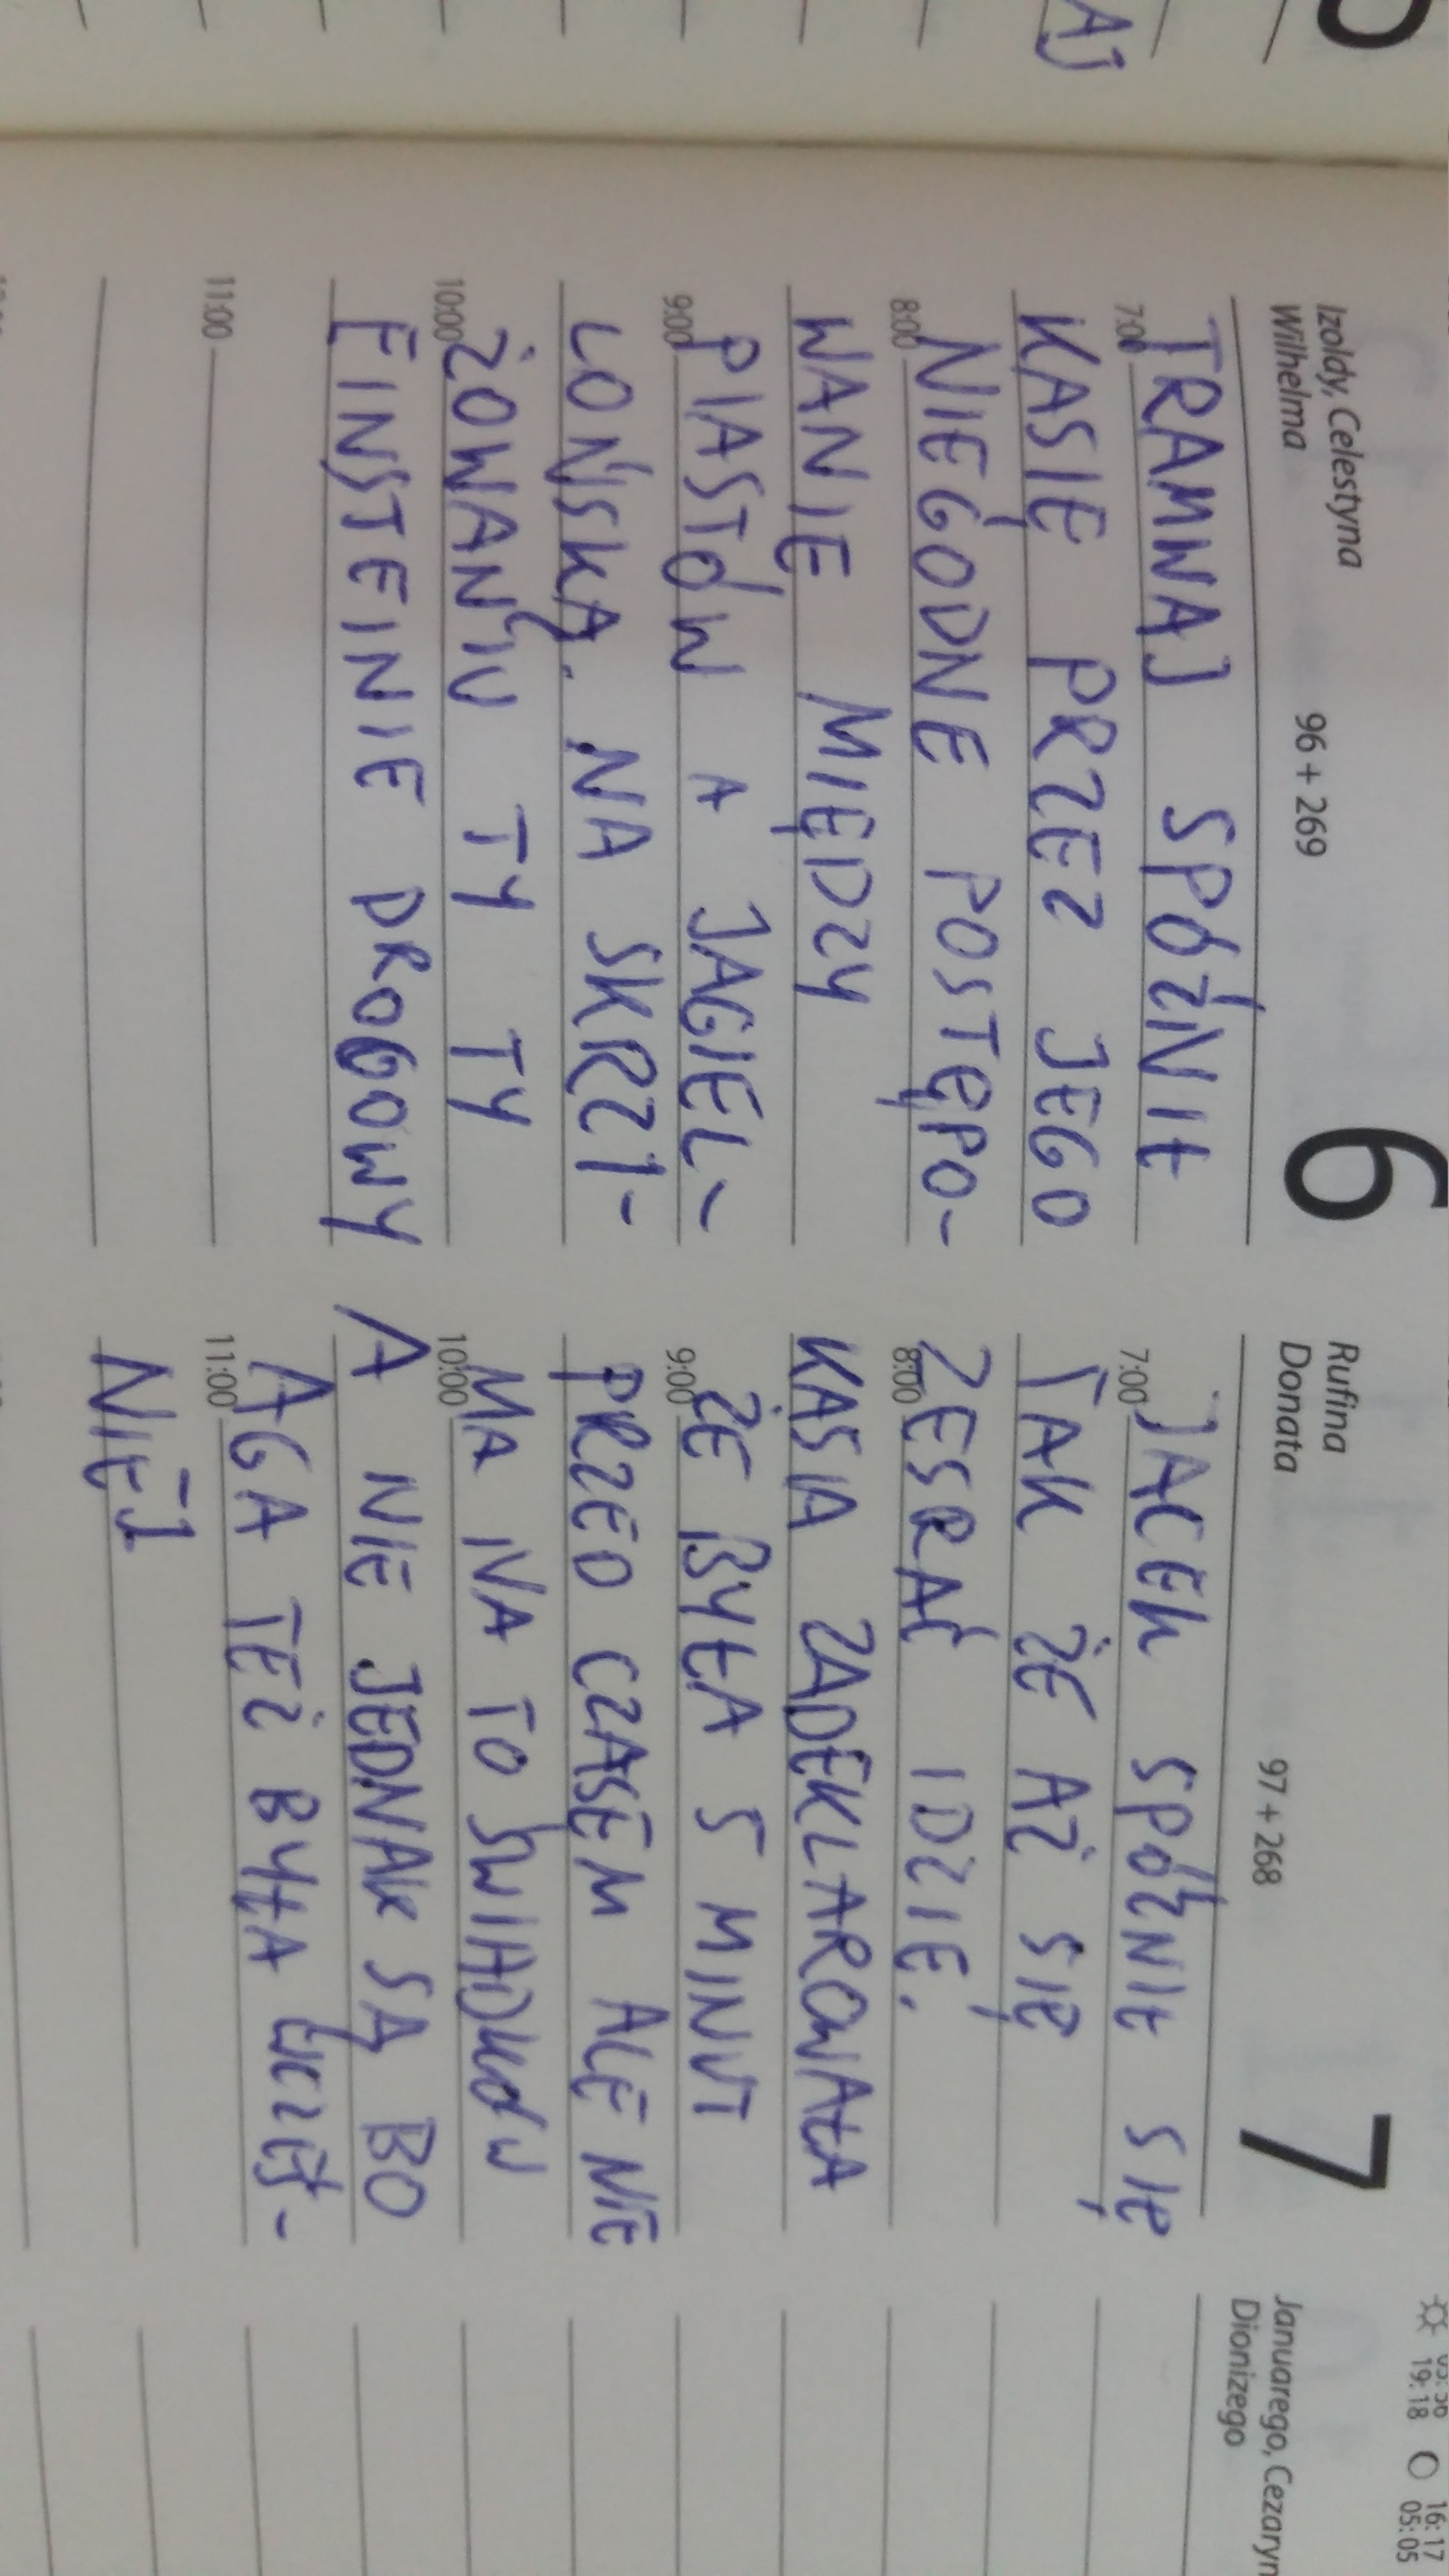 AJ
Izoldy, Celestyna
Wilhelma
96 + 269
6
7:00
TRAMWAJ SPÓŹNIŁ
KASIĘ PRZEZ JEGO
8:00
NIEGODNE POSTĘPO-
WANIE MIĘDZY
9:00
PIASTÓW A JAGIEL-
LOŃSKĄ. NA SKRZY-
10:00
ŻOWANIU TY TY
EINSTEINIE DROGOWY
11:00
Rufina
Donata
97 + 268
7
7:00
JACEK SPÓŹNIŁ SIĘ
TAK ŻE AŻ SIĘ
8:00
ZESRAĆ IDZIE.
KASIA ZADEKLAROWAŁA
9:00
ŻE BYŁA 5 MINUT
PRZED CZASEM ALE NIE
10:00
MA NA TO ŚWIADKÓW
A NIE JEDNAK SĄ BO
11:00
AGA TEŻ BYŁA WCZEŚ-
NIEJ
Januarego, Cezaryn
Dionizego
19:18
16:17
05:05